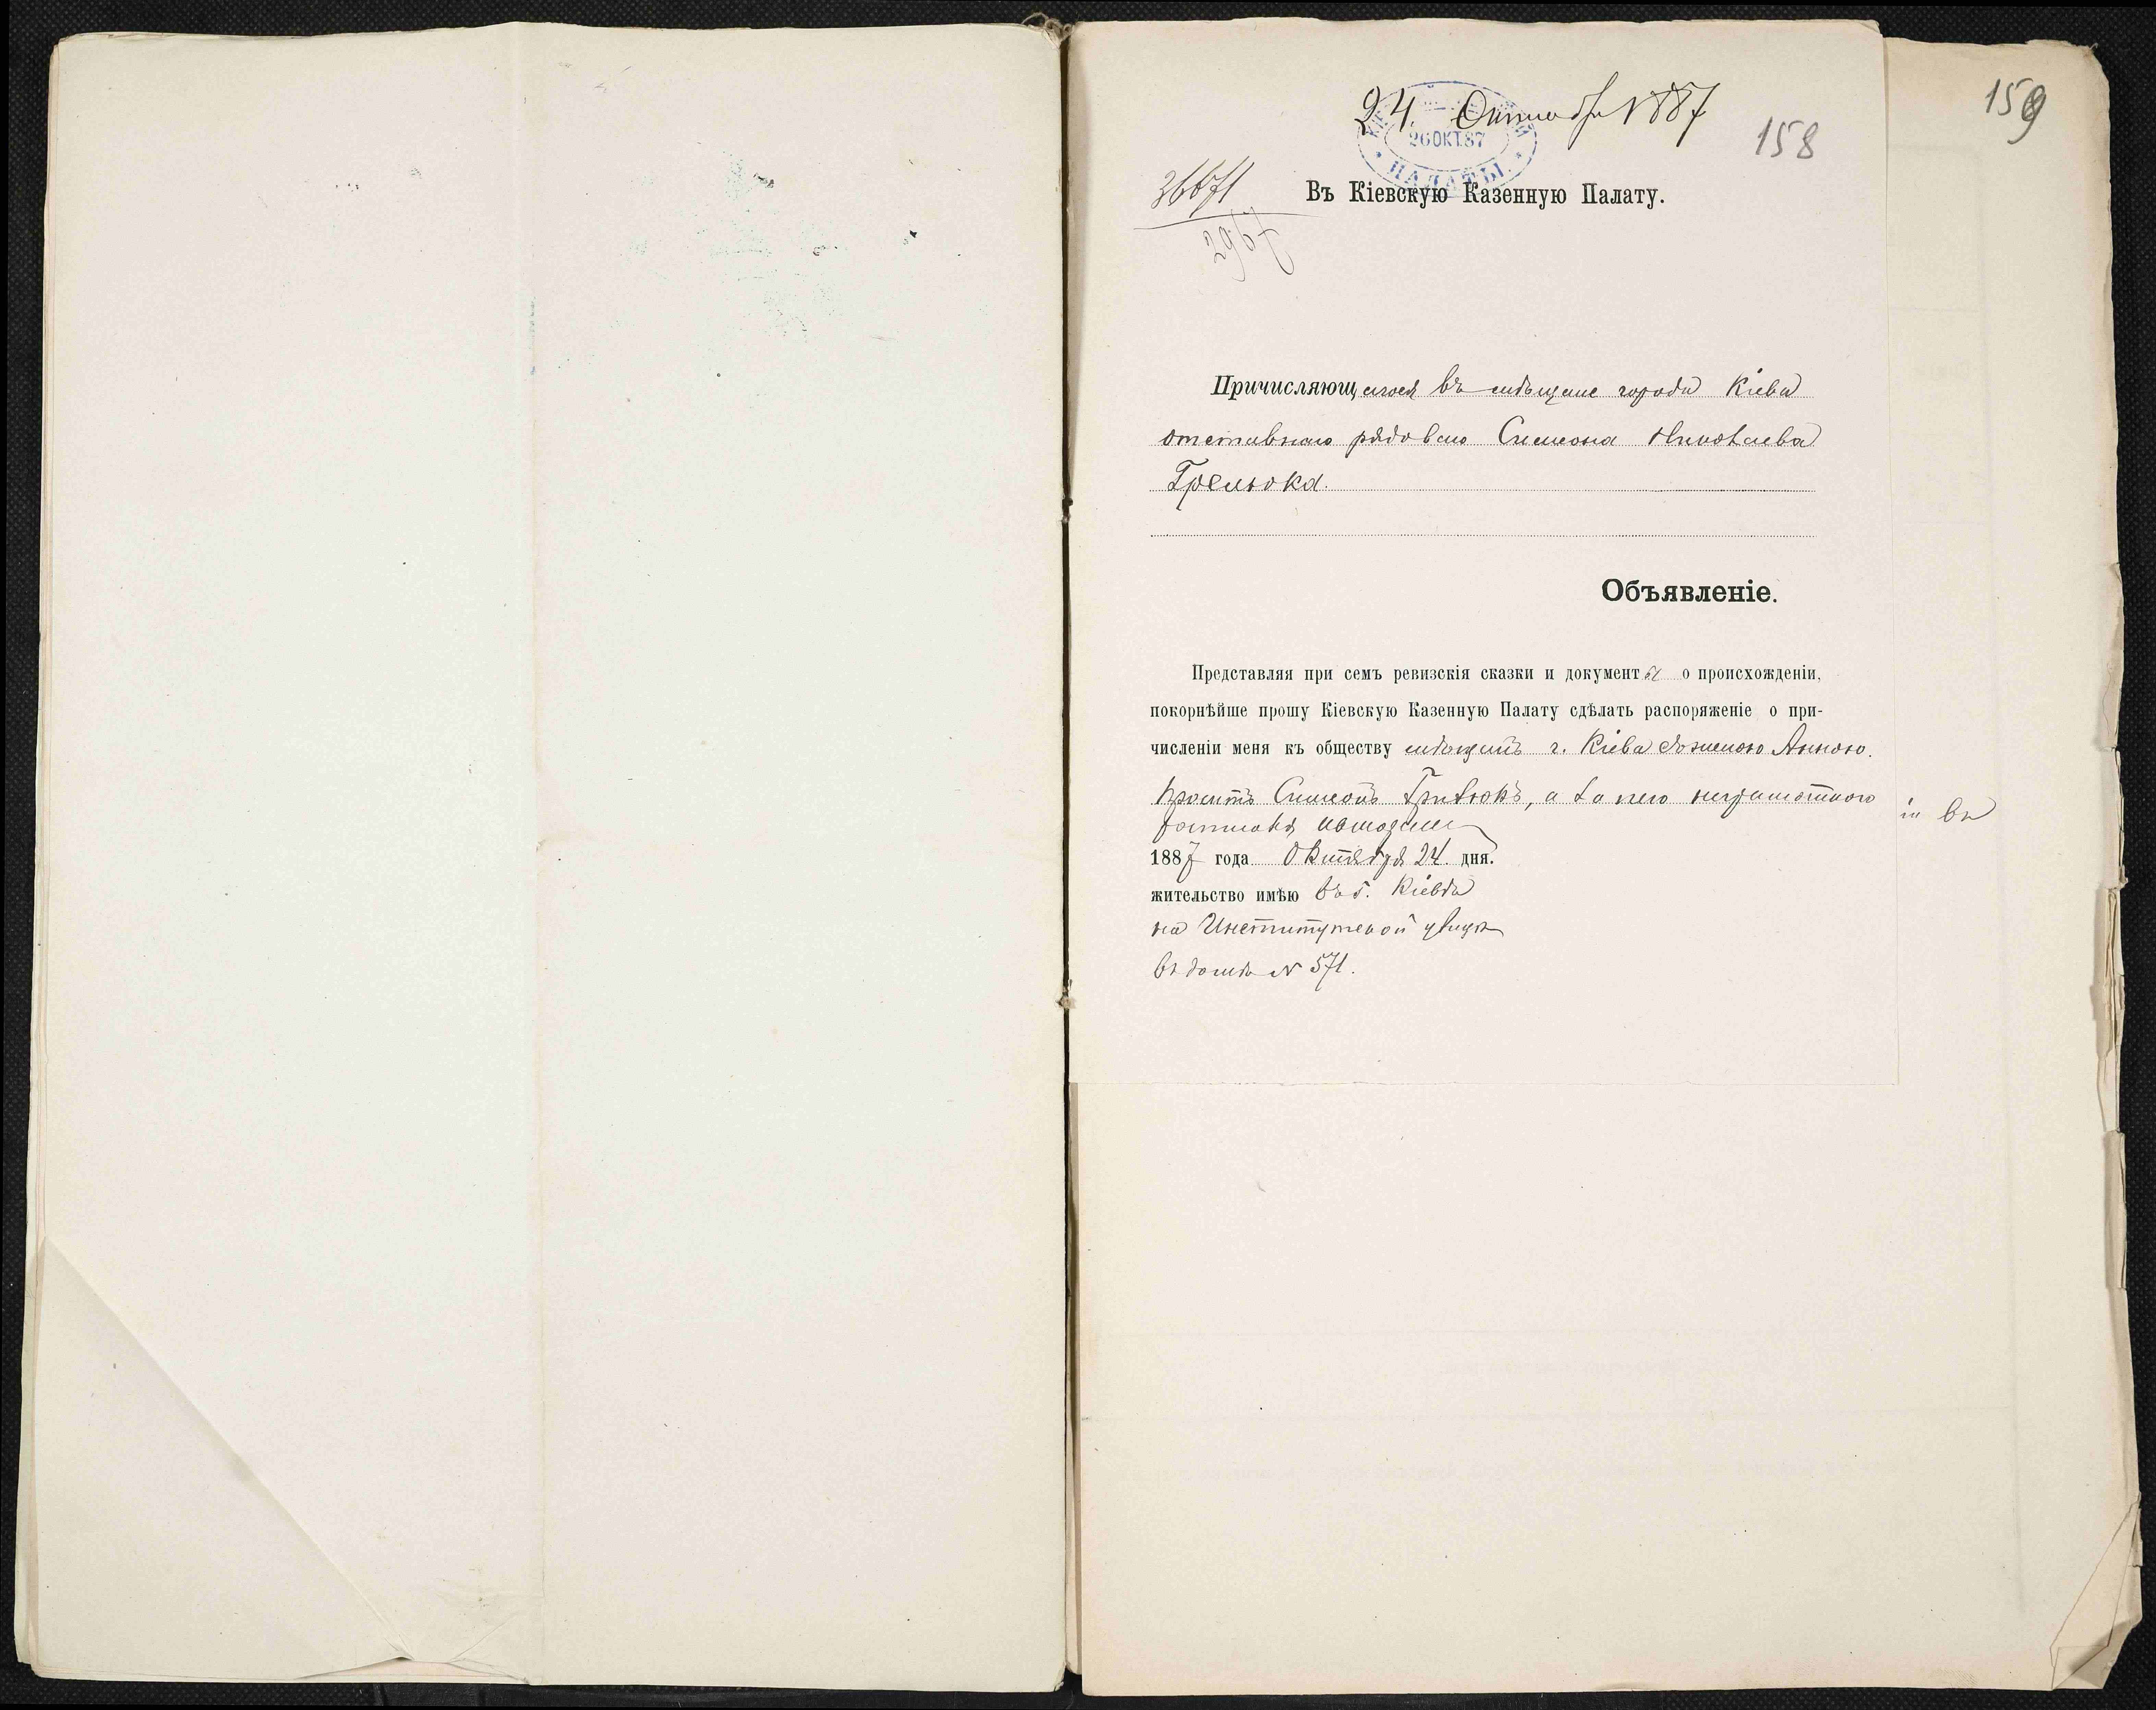 159
24. Октября 1887
158
26 ОКТ. 87
ПАЛАТЫ
Въ Кіевскую Казенную Палату.
Причисляющагося въ мѣщане города Кіева
отставнаго рядоваго Симеона Николаева
Объявленіе.
Представляя при семъ ревизскія сказки и документы о происхожденіи,
покорнѣйше прошу Кіевскую Казенную Палату сдѣлать распоряженіе о при-
численіи меня къ обществу мѣщанъ г. Кіева съ женою Анною.
проситъ Симеонъ Грилюкъ, а за него неграмотнаго
1887 года Октября 24 дня.
жительство имѣю въ г. Кіевѣ
на Институтской улицѣ
въ домѣ № 571.
въ